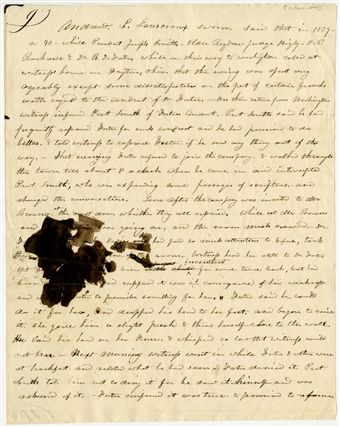 Andrew L. Lamoreux sworn. Said that in 1839.
or 40. while President Joseph Smith, Elder Rigdon Judge Higby, O. P.
Rockwell & Dr R. D. Foster while on their way to Washington called at
witness' house in Dayton, Ohio, that the evening was spent very
agreeably except some dissatisfaction on the part of certain females
with regard to the conduct of Dr Foster. On their return from Washington
witness informed Prest Smith of Foster's conduct. Prest Smith said he had
frequently reproved Foster for such conduct and he had promised to do
better, & told witness to reprove Foster if he saw any thing out of the
way. That evening Foster refused to join the company, & walked through
the town till about 8 o'clock when he came in and interrupted
Prest Smith, who was expounding some passages of scripture, and
changed the conversation. Soon after the company was invited to Mr
Brown's the next door, whither they all repaired. While at Mr Browns
and the room much crowded. Dr
had paid so much attention to before, took
room. Witness heard her state to Dr Foster
been inconvenient for some time back, but did
supposed it was in consequence of her weakness
and to prescribe something for her. Foster said he could
do it for her, and dropped his hand to her feet, and began to raise
it, she gave him a slight push & threw herself close to the wall.
He laid his hand on her Knee, & whispered so low that witness could
not hear. Next Morning witness went in while Foster & others were
at breakfast and related what he had seen. Foster denied it. Prest
Smith told him not to deny it for he saw it himself and was
ashamed of it. Foster confessed it was true, & promised to reform.